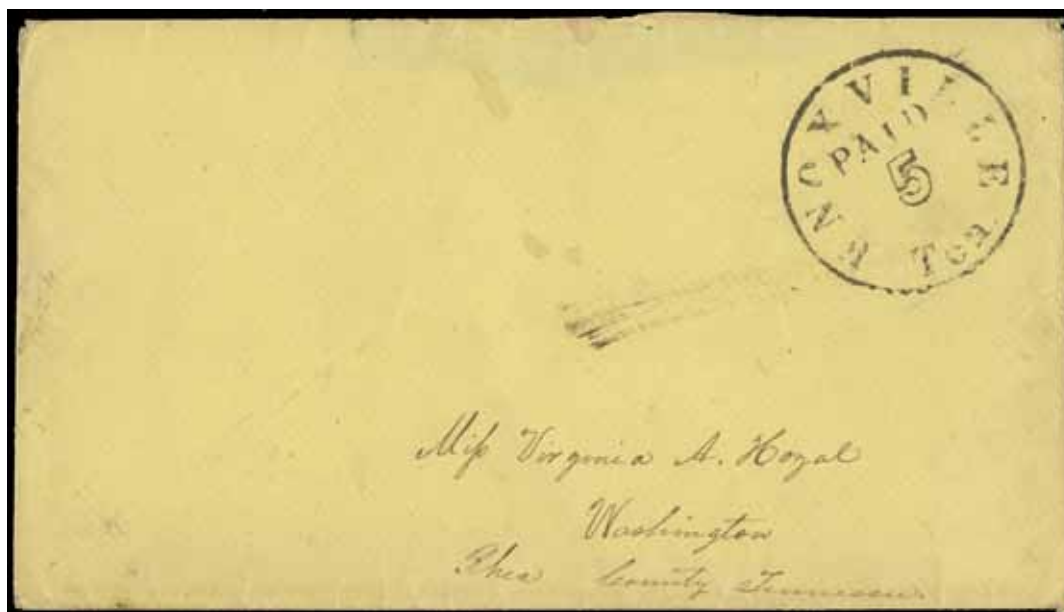 KNOXVILLE Ten.
PAID
5
Miss Virginia A. Hoyal
Washington
Rhea County Tennessee